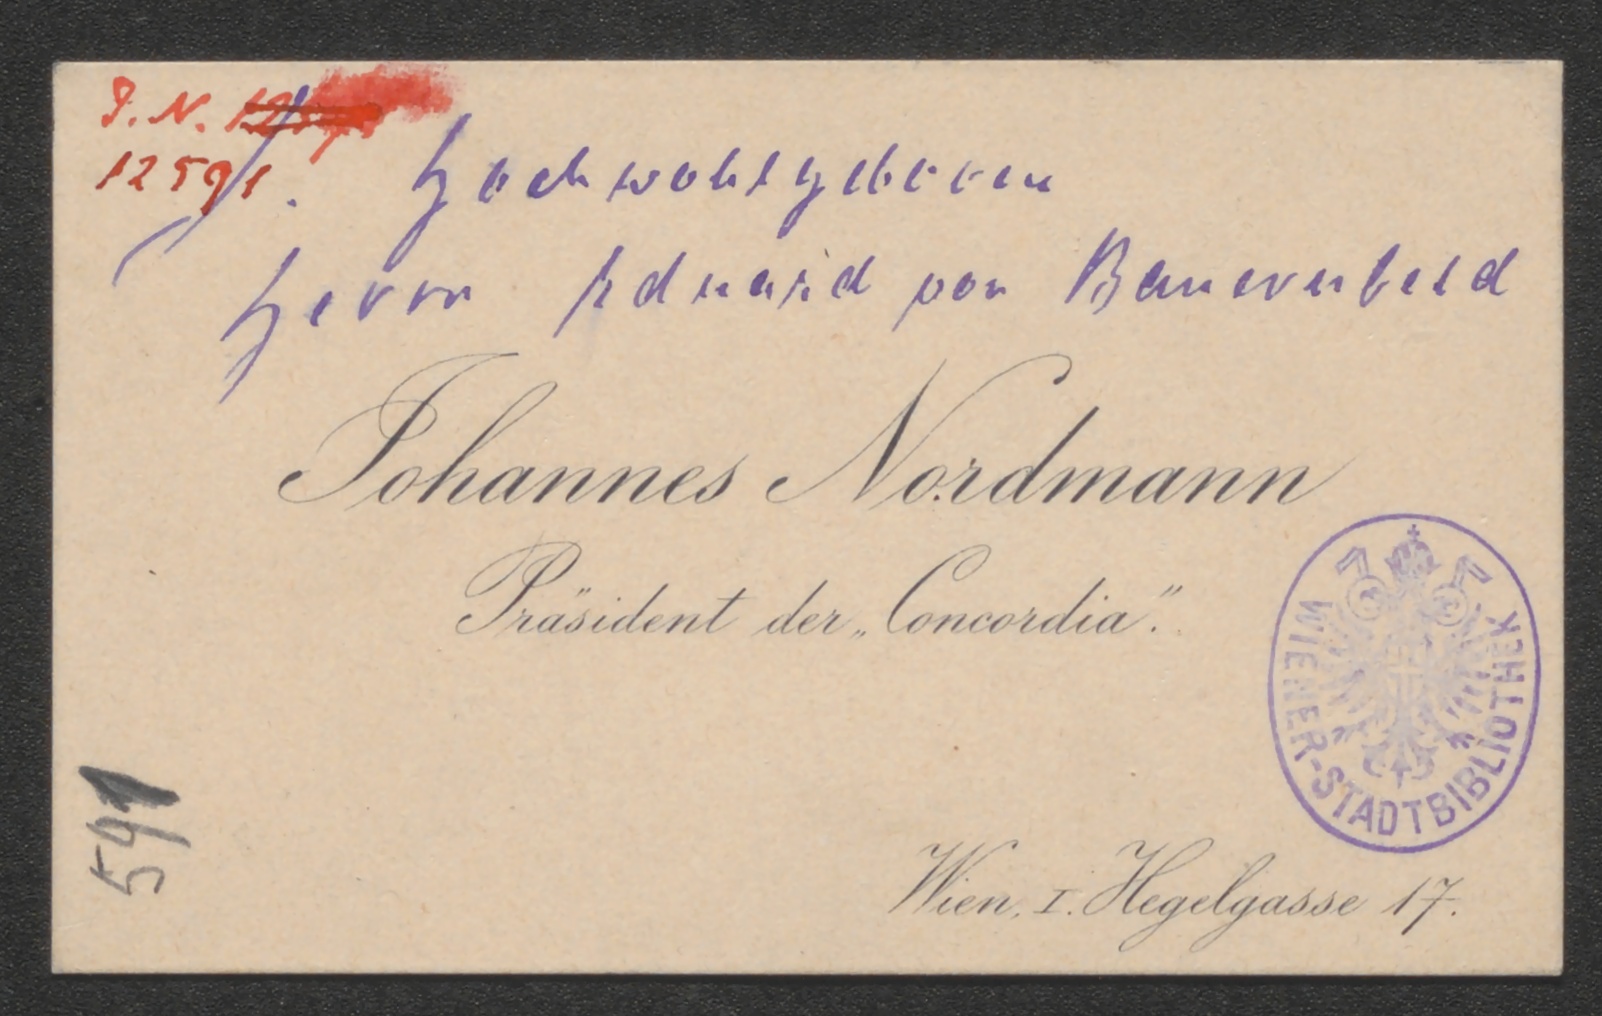 I.N.
12591.
Sr. Hochwohlgeboren
Herrn Eduard von Bauernfeld
Johannes Nordmann
Präsident der „Concordia“.
WIENER-STADTBIBLIOTHEK
591
Wien, I. Hegelgasse 17.